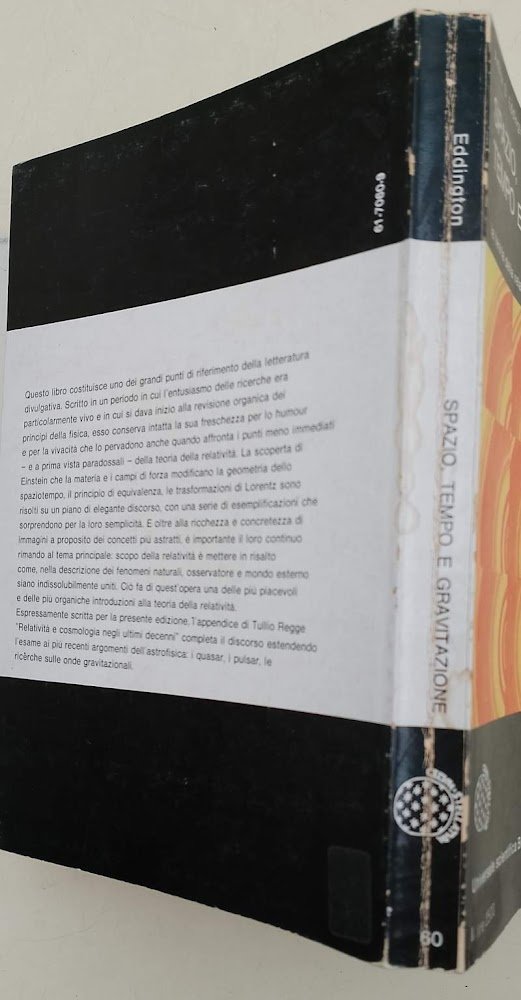 61-7060-9
Questo libro costituisce uno dei grandi punti di riferimento della letteratura
divulgativa. Scritto in un periodo in cui l'entusiasmo delle ricerche era
particolarmente vivo e in cui si dava inizio alla revisione organica dei
principi della fisica, esso conserva intatta la sua freschezza per lo humour
e per la vivacità che lo pervadono anche quando affronta i punti meno immediati
– e a prima vista paradossali – della teoria della relatività. La scoperta di
Einstein che la materia e i campi di forza modificano la geometria dello
spaziotempo, il principio di equivalenza, le trasformazioni di Lorentz sono
risolti su un piano di elegante discorso, con una serie di esemplificazioni che
sorprendono per la loro semplicità. E oltre alla ricchezza e concretezza di
immagini a proposito dei concetti più astratti, è importante il loro continuo
rimando al tema principale: scopo della relatività è mettere in risalto
come, nella descrizione dei fenomeni naturali, osservatore e mondo esterno
siano indissolubilmente uniti. Ciò fa di quest'opera una delle più piacevoli
e delle più organiche introduzioni alla teoria della relatività.
Espressamente scritta per la presente edizione, l'appendice di Tullio Regge
"Relatività e cosmologia negli ultimi decenni" completa il discorso estendendo
l'esame ai più recenti argomenti dell'astrofisica: i quasar, i pulsar, le
ricerche sulle onde gravitazionali.
Eddington
SPAZIO, TEMPO E GRAVITAZIONE
60
SPAZIO,
TEMPO
Università scientifica